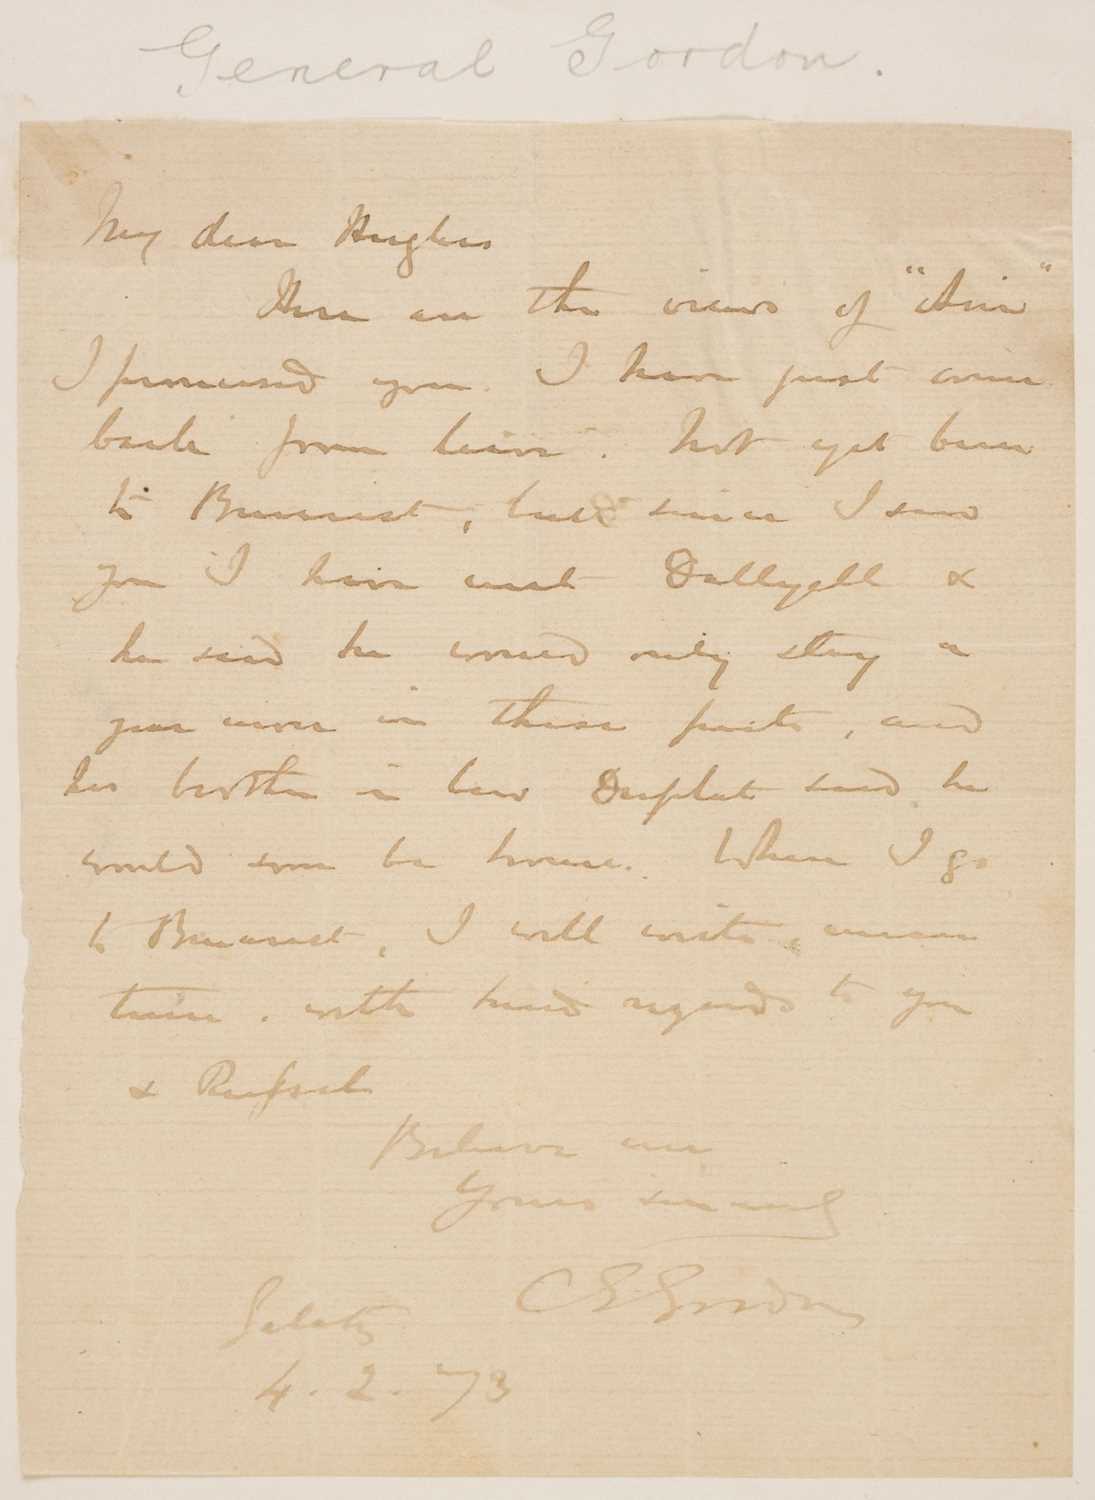 General Gordon.
My dear Hughes
Here are the views of "Ani"
I promised you. I have just come
back from leave. Not yet been
to Bucarest, but since I saw
you I have met Dallyell &
he said he would only stay a
year more in these parts, and
his brother in law Duplat said he
would soon be home. When I go
to Bucarest, I will write, mean
time. with kind regards to you
& Russel
Believe me
Yours sincerely
C E Gordon
Galatz
4. 2. 73